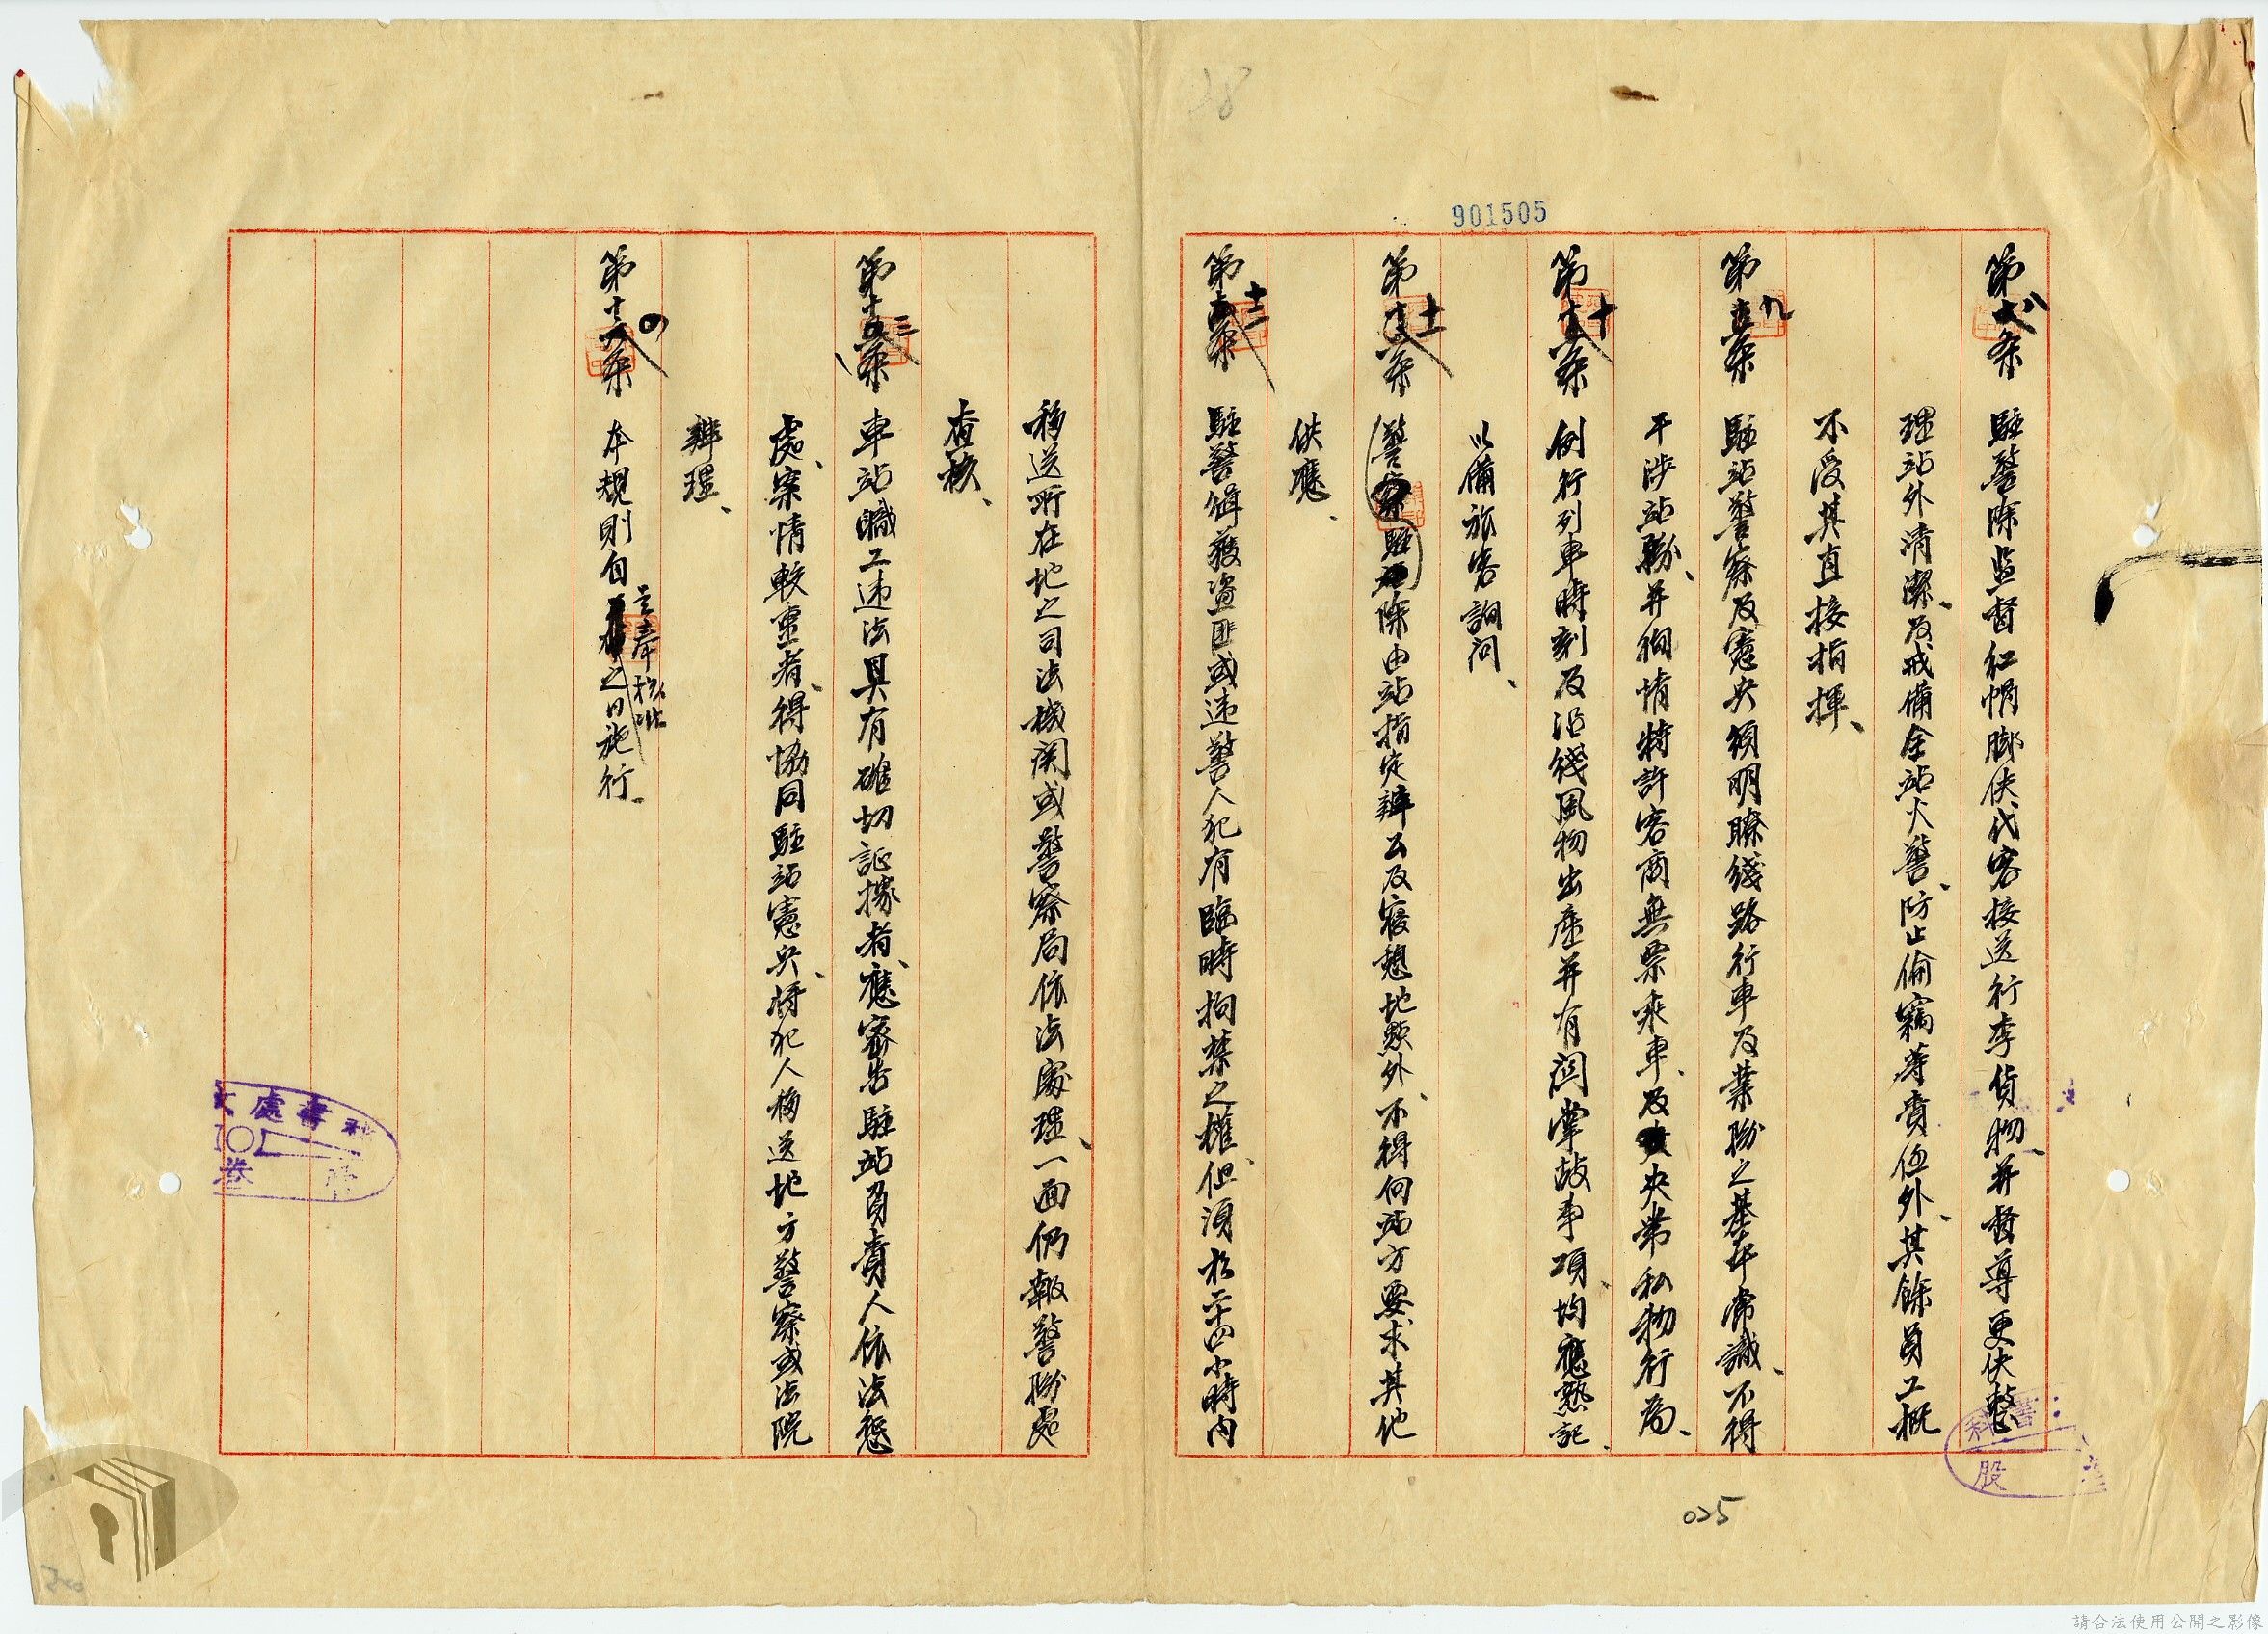 901505
第八条 駐警除監督紅帽脚伕代客接送行李貨物、并督導更伕整
理站外清潔、及戒備全站火警、防止偷竊等責任外、其餘員工概
不受其直接指揮、
第九条 駐站警察及憲兵須明瞭綫路行車及業務之基本常識、不得
干涉站務、并徇情特許客商無票乘車、及夾帶私物行為、
第十条 例行列車時刻及沿綫風物出產并有関掌故事項、均應熟記、
以備旅客詢问、
第十一条 除由站指定辦公及寢憩地點外、不得向站方要求其他
供應、
第十二条 駐警緝獲盗匪或违警人犯有臨時拘禁之權、但須於二十四小時内
移送所在地之司法機関或警察局依法處理、一面仍報警務處
查核、
第十三条 車站職工违法具有確切証據者、應密告駐站負責人依法懲
處、案情較重者、得協同駐站憲兵、将犯人移送地方警察或法院
辦理、
第十四条 本規則自呈奉核准之日施行、
025
請合法使用公開之影像